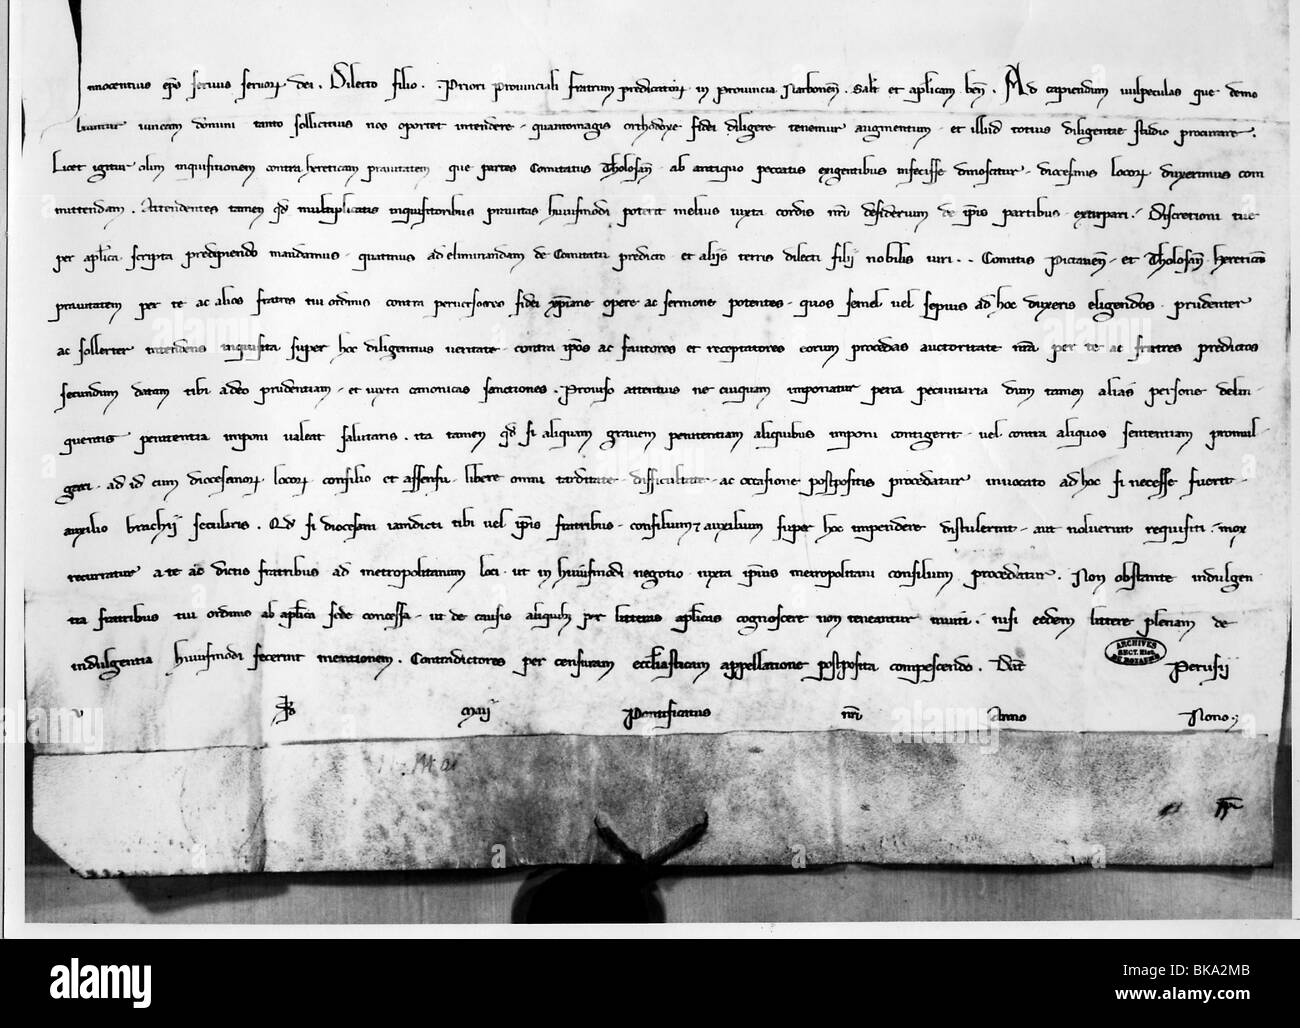 Innocentius ep̄s servus servoꝝ dei. Dilecto filio. . Priori Provinciali fratrum predicatoꝝ in provincia Narboneñ. Salt̄ et aplicam beñ. Ad capiendum vulpeculas que demo
liuntur vineam domini tanto sollicitius nos oportet intendere. quantomagis orthodoxe fidei diligere tenemur augmentum. et illud totius diligentie studio procurare.
Licet igitur olim inquisitionem contra hereticam pravitatem que partes Comitatus Tholosañ. ab antiquo peccatis exigentibus infecisse dinoscitur. diocesanis locoꝝ duxerimus com
mittendam. Attendentes tamen qd̄ multiplicatis inquisitoribus pravitas huiusmodi poterit melius iuxta cordis nr̄i desiderium de ip̄is partibus extirpari. Discretioni tue
per aplica scripta precipiendo mandamus. quatinus ad eliminandam de Comitatu predicto et aliis terris dilecti filii nobilis viri . . Comitis Pictaveñ. et Tholosañ. hereticam
pravitatem per te ac alios fratres tui ordinis contra perversores fidei xp̄iane opere ac sermone potentes. quos semel vel sepius ad hoc duxeris eligendos prudenter
ac sollerter intendens inquisita super hoc diligentius veritate. contra ip̄os ac fautores et receptatores eorum procedas auctoritate nr̄a per te ac fratres predictos
secundum datam tibi a deo prudentiam. et iuxta canonicas sanctiones. Proviso attentius ne cuiquam imponatur pena pecuniaria dum tamen alias persone delin
quentis penitentia imponi valeat salutaris. ita tamen qd̄ si aliquam gravem penitentiam aliquibus imponi contigerit. vel contra aliquos sententiam promul
gari. ad id cum diocesanoꝝ locoꝝ consilio et assensu. libere omni tarditate. difficultate. ac occasione postpositis procedatur invocato ad hoc si necesse fuerit.
auxilio brachii secularis. Qd̄ si diocesani iamdicti tibi vel ip̄is fratribus. consilium et auxilium super hoc impendere distulerint. aut noluerint requisiti. mox
recurratur a te ac dictis fratribus ad metropolitanum loci. ut in huiusmodi negotio iuxta ip̄ius metropolitani consilium procedatur. Non obstante indulgen
tia fratribus tui ordinis ab aplica sede concessa. ut de causis aliquibꝫ per litteras aplicas cognoscere non teneantur inviti. nisi eedem littere plenam de
indulgentia huiusmodi fecerint mentionem. Contradictores per censuram eccl̄iasticam appellatione postposita compescendo. Dat̄ Perusii
v Id̄ Maii Pontificatus nr̄i Anno Nono.
ARCHIVES
SECT. HIST.
DU ROYAUME
alamy
Image ID: BKA2MB
www.alamy.com